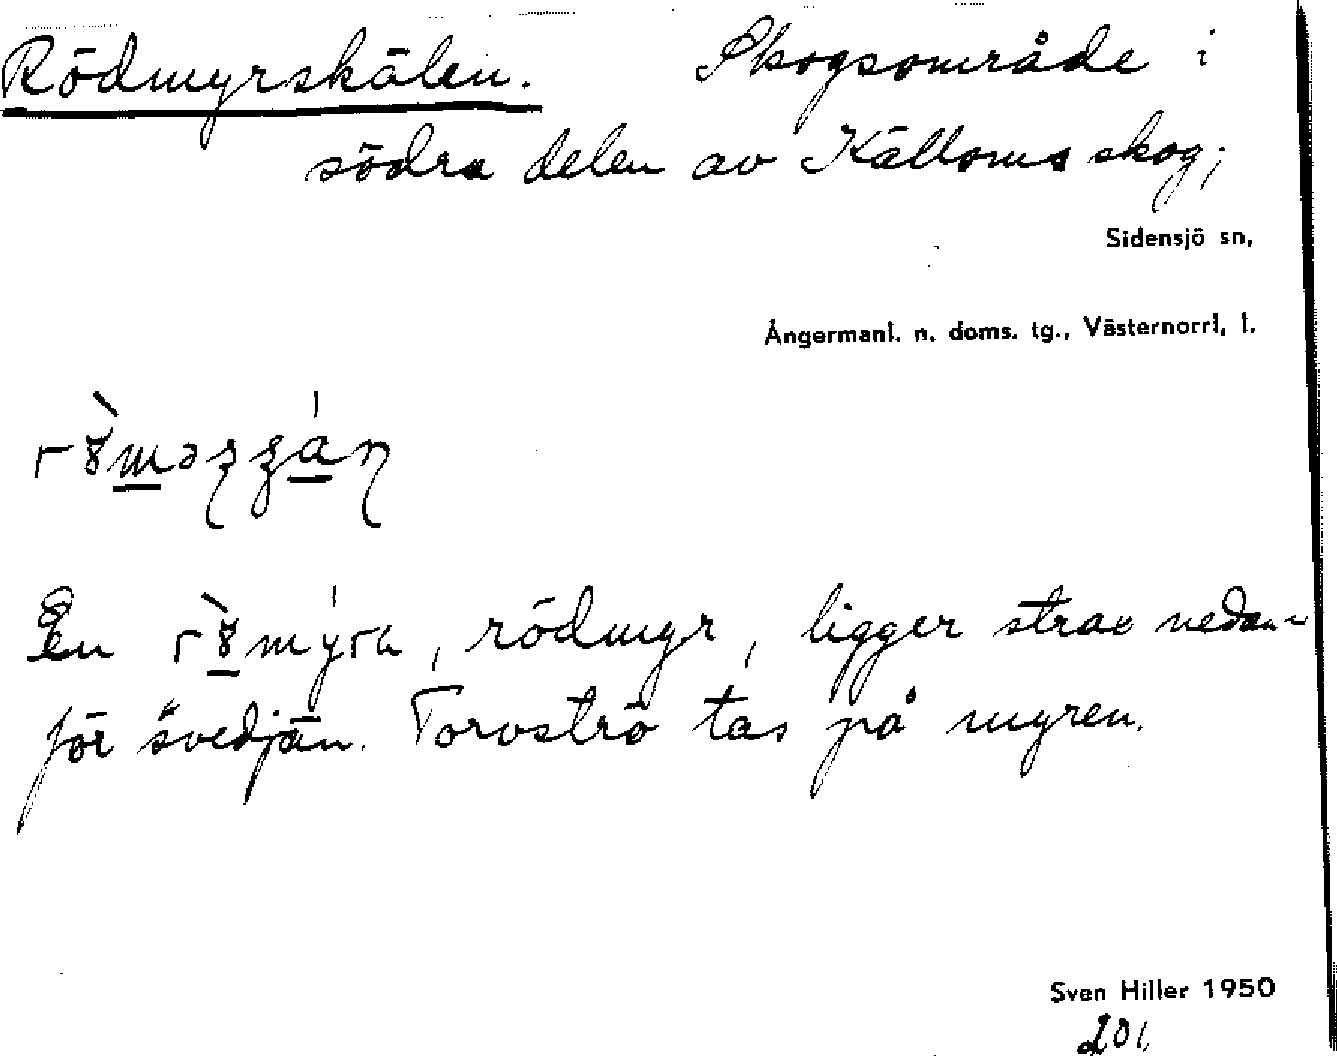 Rödmyrskälen. Skogsområde i
södra delen av Källoms skog;
Sidensjö sn,
Ångermanl. n. doms. tg., Västernorrl. l.
En rö̀mýra, rödmyr, ligger strax nedan-
för svedjan. Torvströ tas på myren.
Sven Hiller 1950
201.